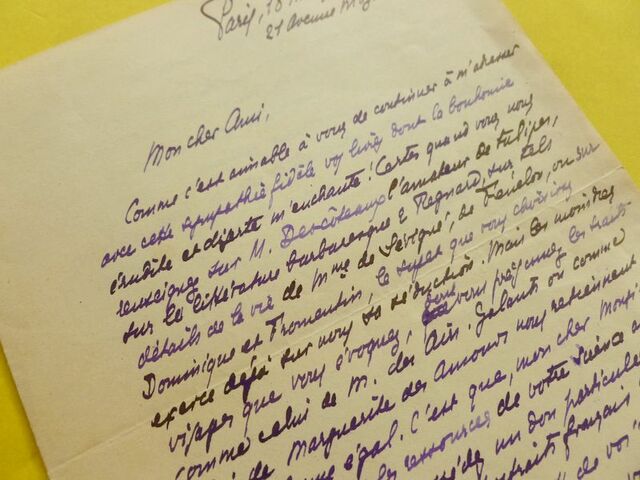 Paris, 18
21 Avenue
Mon cher Ami,
Comme c'est aimable à vous de continuer à m'adresser
avec cette sympathie fidèle vos livres dont la bonhomie
érudite et diserte m'enchante! Certes quand vous nous
renseignez sur M. Descôteaux l'amateur de tulipes,
sur la littérature barbaresque & Regnard, sur tels
détails de la vie de Mme de Sévigné, de Fénelon, ou sur
Dominique et Fromentin, le sujet que vous choisissez
exerce déjà sur nous sa séduction. Mais les moindres
visages que vous évoquez, dont vous peignez les traits
comme celui de M. des Ain. Galants ou comme
de Marguerite des Amours nous retiennent
égal. C'est que, mon cher
les ressources de votre science
un don particulier
portraits français
de vos